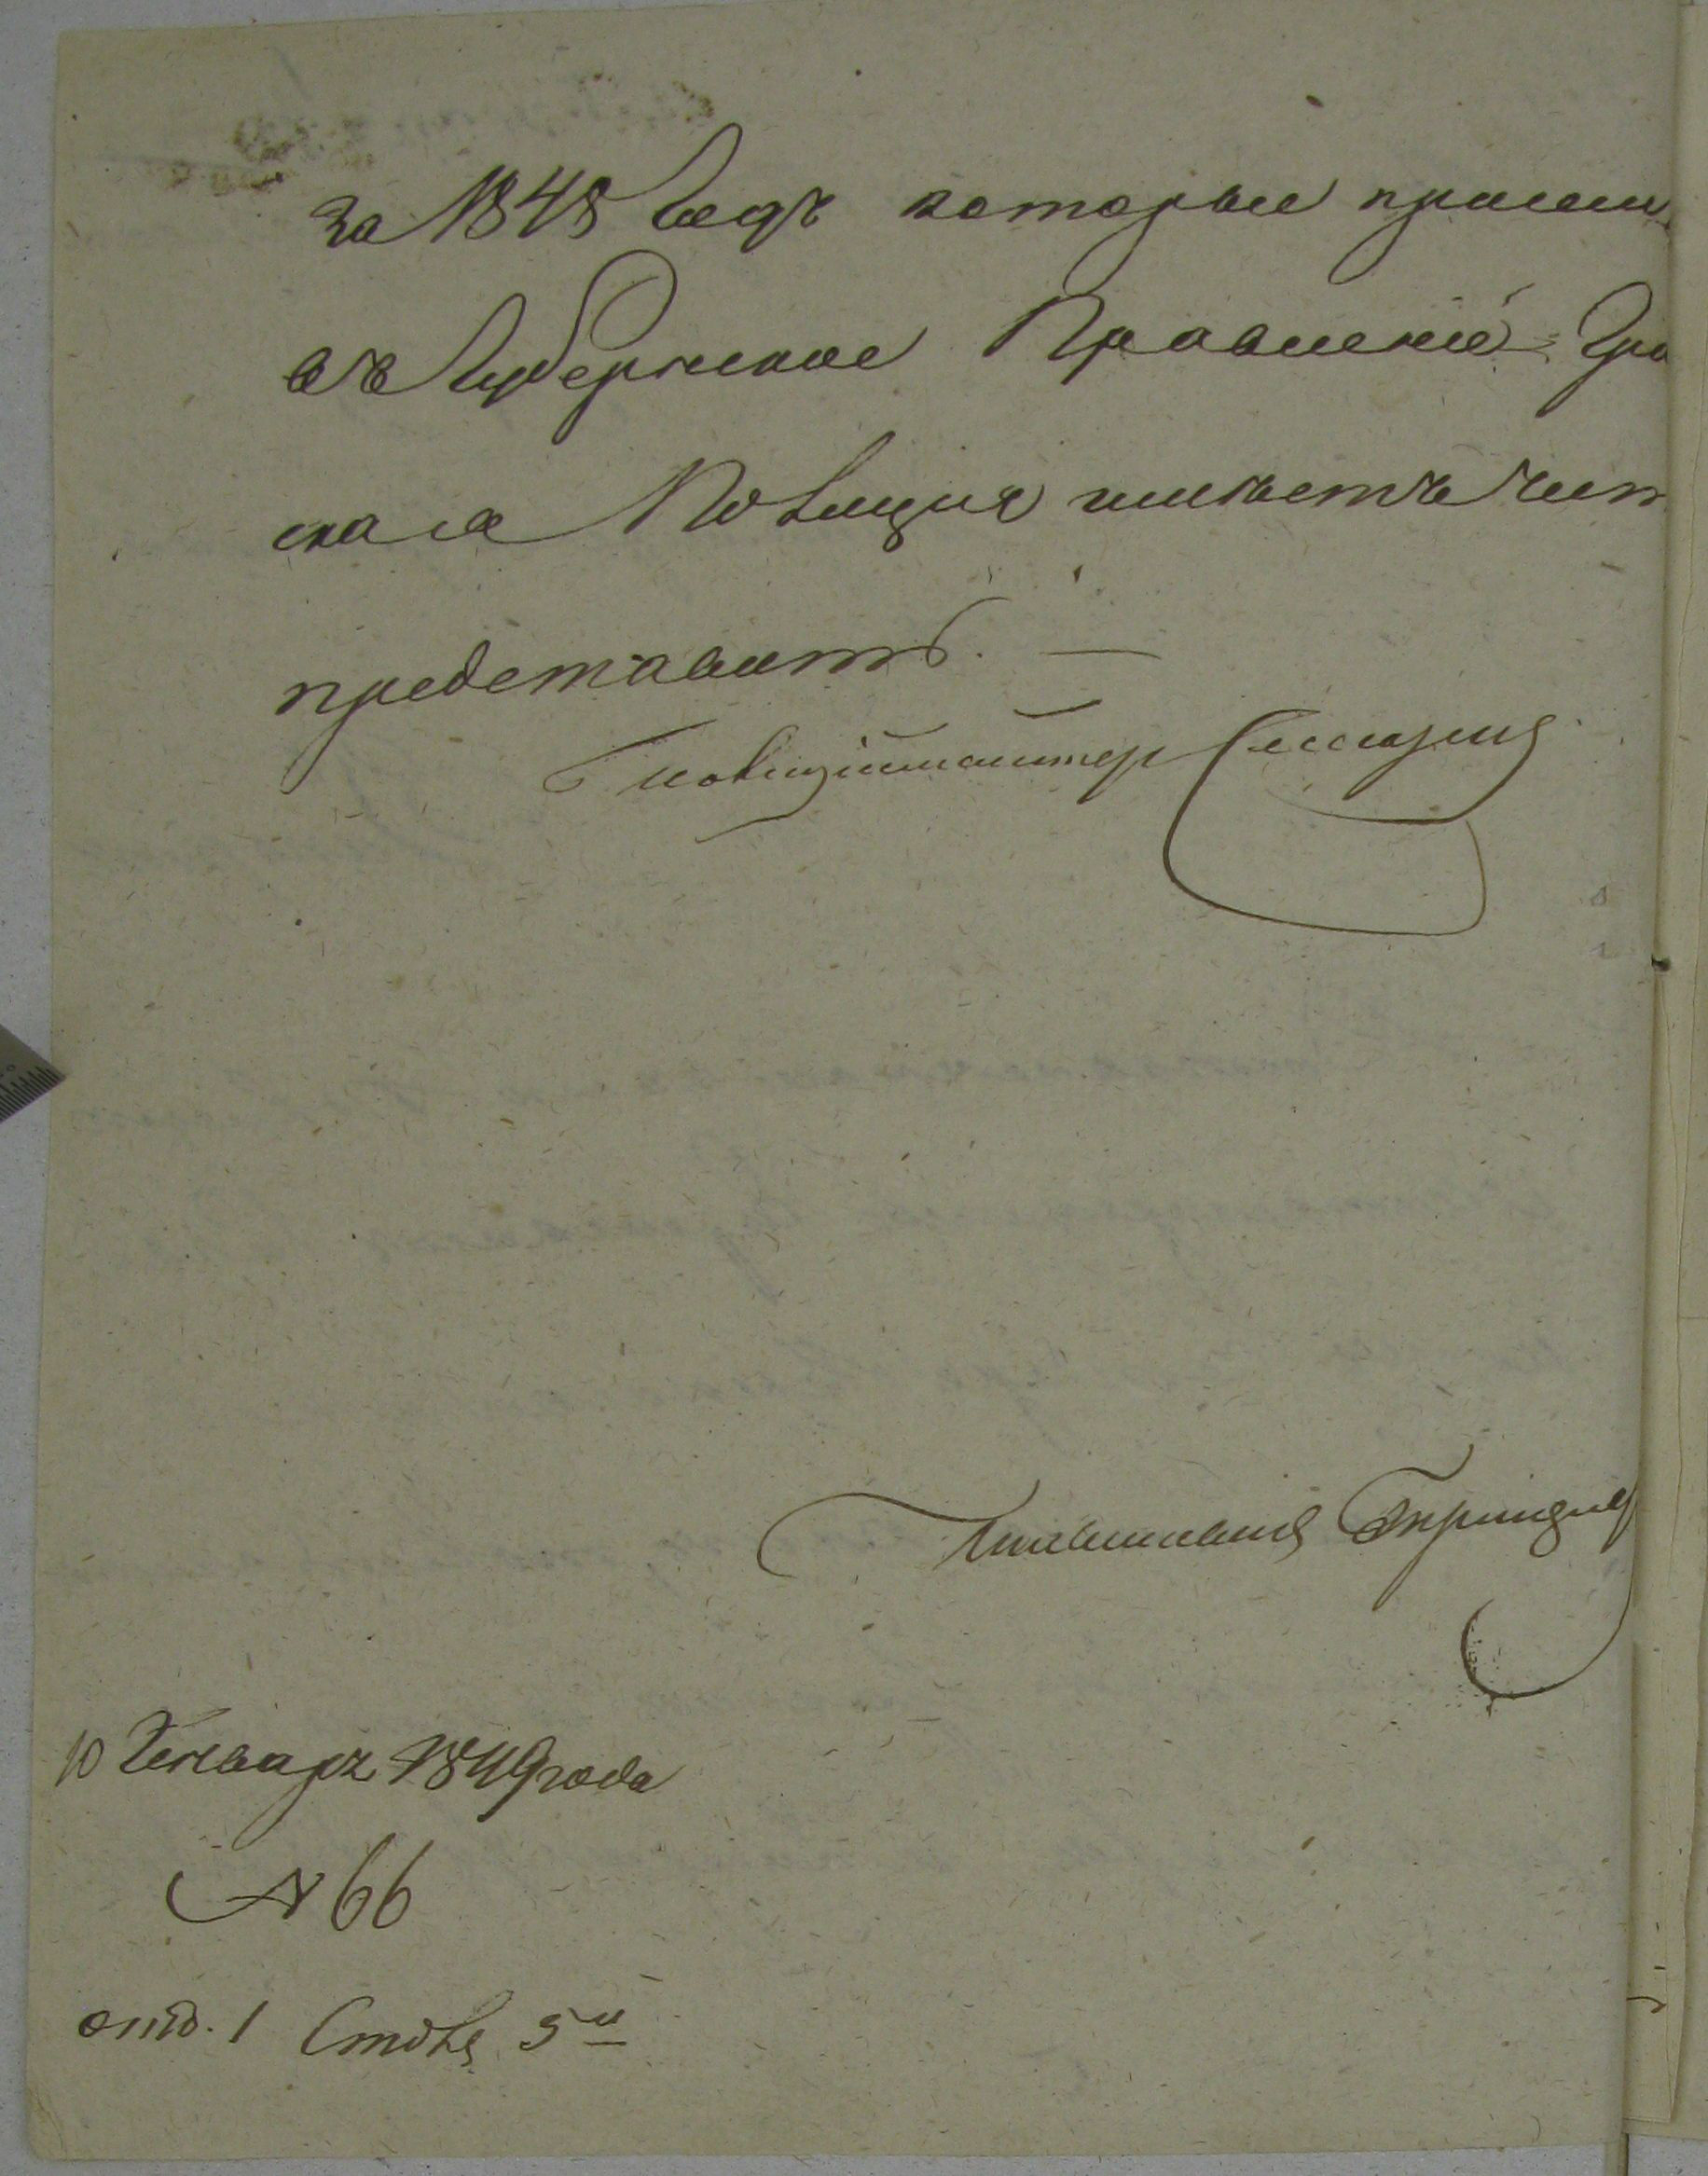 за 1848 Годъ которые при сем
въ Губернское Правленіе Гра
ская Полиция имѣетъ чест
представить. —
Полицiймейстер
10 Генваря 1849 года
№ 66
отд. 1 Столъ 5й